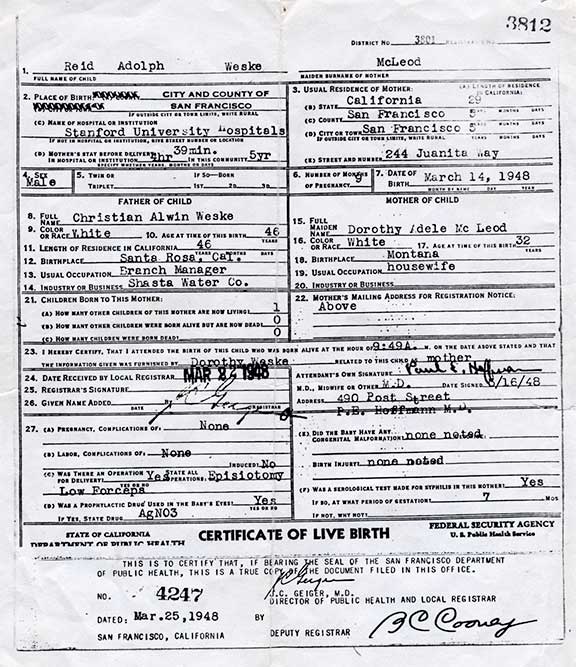 3812
DISTRICT NO. 3801
Reid Adolph Weske McLeod
1. FULL NAME OF CHILD MAIDEN SURNAME OF MOTHER
2. PLACE OF BIRTH: CITY AND COUNTY OF
SAN FRANCISCO
IF OUTSIDE CITY OR TOWN LIMITS, WRITE RURAL
(C) NAME OF HOSPITAL OR INSTITUTION
Stanford University Hospitals
IF NOT IN HOSPITAL OR INSTITUTION, GIVE STREET NUMBER OR LOCATION
(D) MOTHER'S STAY BEFORE DELIVERY: 39min.
IN HOSPITAL OR INSTITUTION 4hr IN THIS COMMUNITY 5yr
SPECIFY WHETHER YEARS, MONTHS OR DAYS
3. USUAL RESIDENCE OF MOTHER: (A) LENGTH OF RESIDENCE
IN CALIFORNIA:
(B) STATE California 29
(C) COUNTY San Francisco 5 YEARS MONTHS DAYS
(D) CITY OR TOWN San Francisco 5 YEARS MONTHS DAYS
IF OUTSIDE CITY OR TOWN LIMITS, WRITE RURAL YEARS MONTHS DAYS
(E) STREET AND NUMBER 244 Juanita Way
4. SEX Male 5. TWIN OR TRIPLET IF SO—BORN 1ST 2D 3D
6. NUMBER OF MONTHS OF PREGNANCY 9 7. DATE OF BIRTH March 14, 1948
MONTH BY NAME DAY YEAR
FATHER OF CHILD
8. FULL NAME Christian Alwin Weske
9. COLOR OR RACE White 10. AGE AT TIME OF THIS BIRTH 46 YEARS
11. LENGTH OF RESIDENCE IN CALIFORNIA 46 YEARS MONTHS DAYS
12. BIRTHPLACE Santa Rosa, Cal.
13. USUAL OCCUPATION Branch Manager
14. INDUSTRY OR BUSINESS Shasta Water Co.
MOTHER OF CHILD
15. FULL MAIDEN NAME Dorothy Adele Mc Leod
16. COLOR OR RACE White 17. AGE AT TIME OF THIS BIRTH 32 YEARS
18. BIRTHPLACE Montana
19. USUAL OCCUPATION housewife
20. INDUSTRY OR BUSINESS
21. CHILDREN BORN TO THIS MOTHER:
(A) HOW MANY OTHER CHILDREN OF THIS MOTHER ARE NOW LIVING? 1
(B) HOW MANY OTHER CHILDREN WERE BORN ALIVE BUT ARE NOW DEAD? 0
(C) HOW MANY CHILDREN WERE BORN DEAD? 0
22. MOTHER'S MAILING ADDRESS FOR REGISTRATION NOTICE:
Above
23. I HEREBY CERTIFY, THAT I ATTENDED THE BIRTH OF THIS CHILD WHO WAS BORN ALIVE AT THE HOUR OF 9:49A. M. ON THE DATE ABOVE STATED AND THAT
THE INFORMATION GIVEN WAS FURNISHED BY Dorothy Weske RELATED TO THIS CHILD AS mother
24. DATE RECEIVED BY LOCAL REGISTRAR MAR 24 1948
25. REGISTRAR'S SIGNATURE J C Geiger
26. GIVEN NAME ADDED
DATE REGISTRAR
ATTENDANT'S OWN SIGNATURE: Paul E. Hoffman
M.D., MIDWIFE OR OTHER M.D. DATE SIGNED 3/16/48
ADDRESS 490 Post Street
P.E. Hoffmann M.D.
27. (A) PREGNANCY, COMPLICATIONS OF: None
(B) LABOR, COMPLICATIONS OF: None
INDUCED? No
(C) WAS THERE AN OPERATION FOR DELIVERY? Yes STATE ALL OPERATIONS: Episiotomy
YES OR NO
Low Forceps
(D) WAS A PROPHYLACTIC DRUG USED IN THE BABY'S EYES? Yes
YES OR NO
IF YES, STATE DRUG AgNO3
(E) DID THE BABY HAVE ANY
CONGENITAL MALFORMATION? none noted
BIRTH INJURY? none noted
(F) WAS A SEROLOGICAL TEST MADE FOR SYPHILIS IN THIS MOTHER? Yes
YES OR NO
IF SO, AT WHAT PERIOD OF GESTATION? 7 MOS
IF NOT, WHY NOT?
STATE OF CALIFORNIA
DEPARTMENT OF PUBLIC HEALTH
CERTIFICATE OF LIVE BIRTH
FEDERAL SECURITY AGENCY
U. S. Public Health Service
THIS IS TO CERTIFY THAT, IF BEARING THE SEAL OF THE SAN FRANCISCO DEPARTMENT
OF PUBLIC HEALTH, THIS IS A TRUE COPY OF THE DOCUMENT FILED IN THIS OFFICE.
J C Geiger
NO. 4247
J.C. GEIGER, M.D.
DIRECTOR OF PUBLIC HEALTH AND LOCAL REGISTRAR
DATED: Mar.25,1948 BY B C Cooney
SAN FRANCISCO, CALIFORNIA DEPUTY REGISTRAR